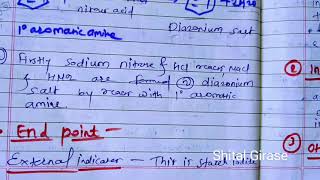 nitrous acid
Diazonium salt
1° aromatic amine
Firstly sodium nitrate & Hcl reacs Nacl
& HNO2 are formed ② diazonium
salt by reacs with 1° aromatic
amine
* End point -
External indicator - This is starch iodide
② In
③ Ot
Shital Girase